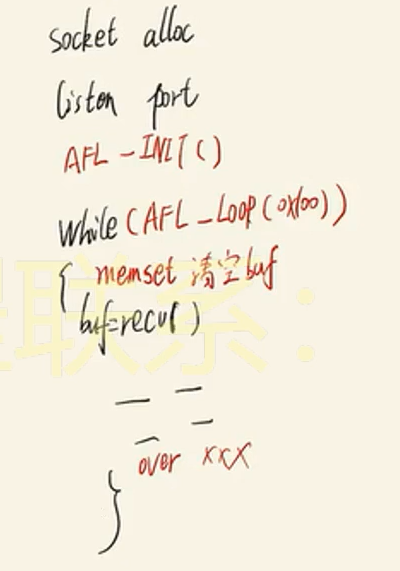 socket alloc
liston port
AFL-INIT()
while(AFL_LOOP(0x100))
{ memset 清空buf
buf=recv()
over xxx
}